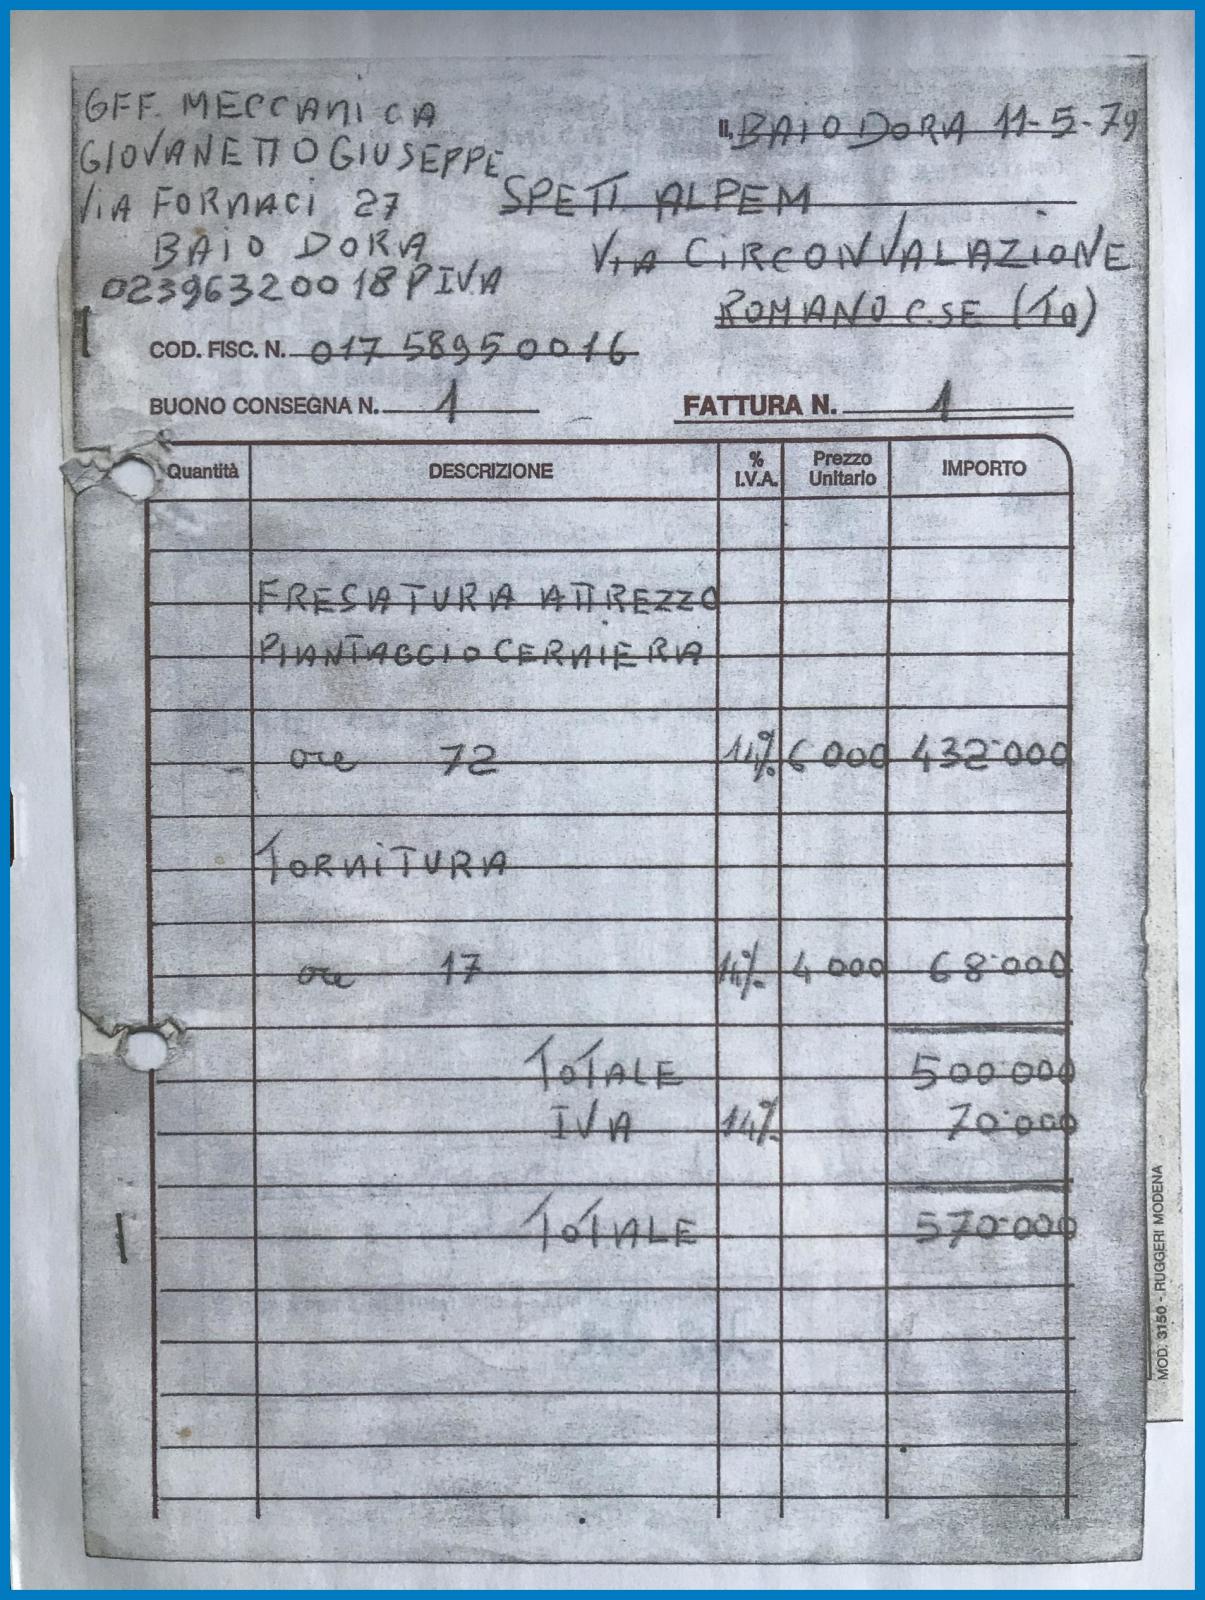 GFF. MECCANICA
GIOVANETTO GIUSEPPE
VIA FORNACI 27
BAIO DORA
02396320018 P IVA
IL BAIO DORA 11-5-79
SPETT. ALPEM
VIA CIRCONVALAZIONE
ROMANO C.SE (TO)
COD. FISC. N. 01758950016
BUONO CONSEGNA N. 1 FATTURA N. 1
Quantità DESCRIZIONE % I.V.A. Prezzo Unitario IMPORTO
FRESATURA ATTREZZO
PIANTAGGIO CERNIERA
ore 72 14% 6 000 432.000
TORNITURA
ore 17 14% 4 000 68.000
TOTALE 500.000
IVA 14% 70.000
TOTALE 570.000
MOD. 3150 - RUGGERI MODENA